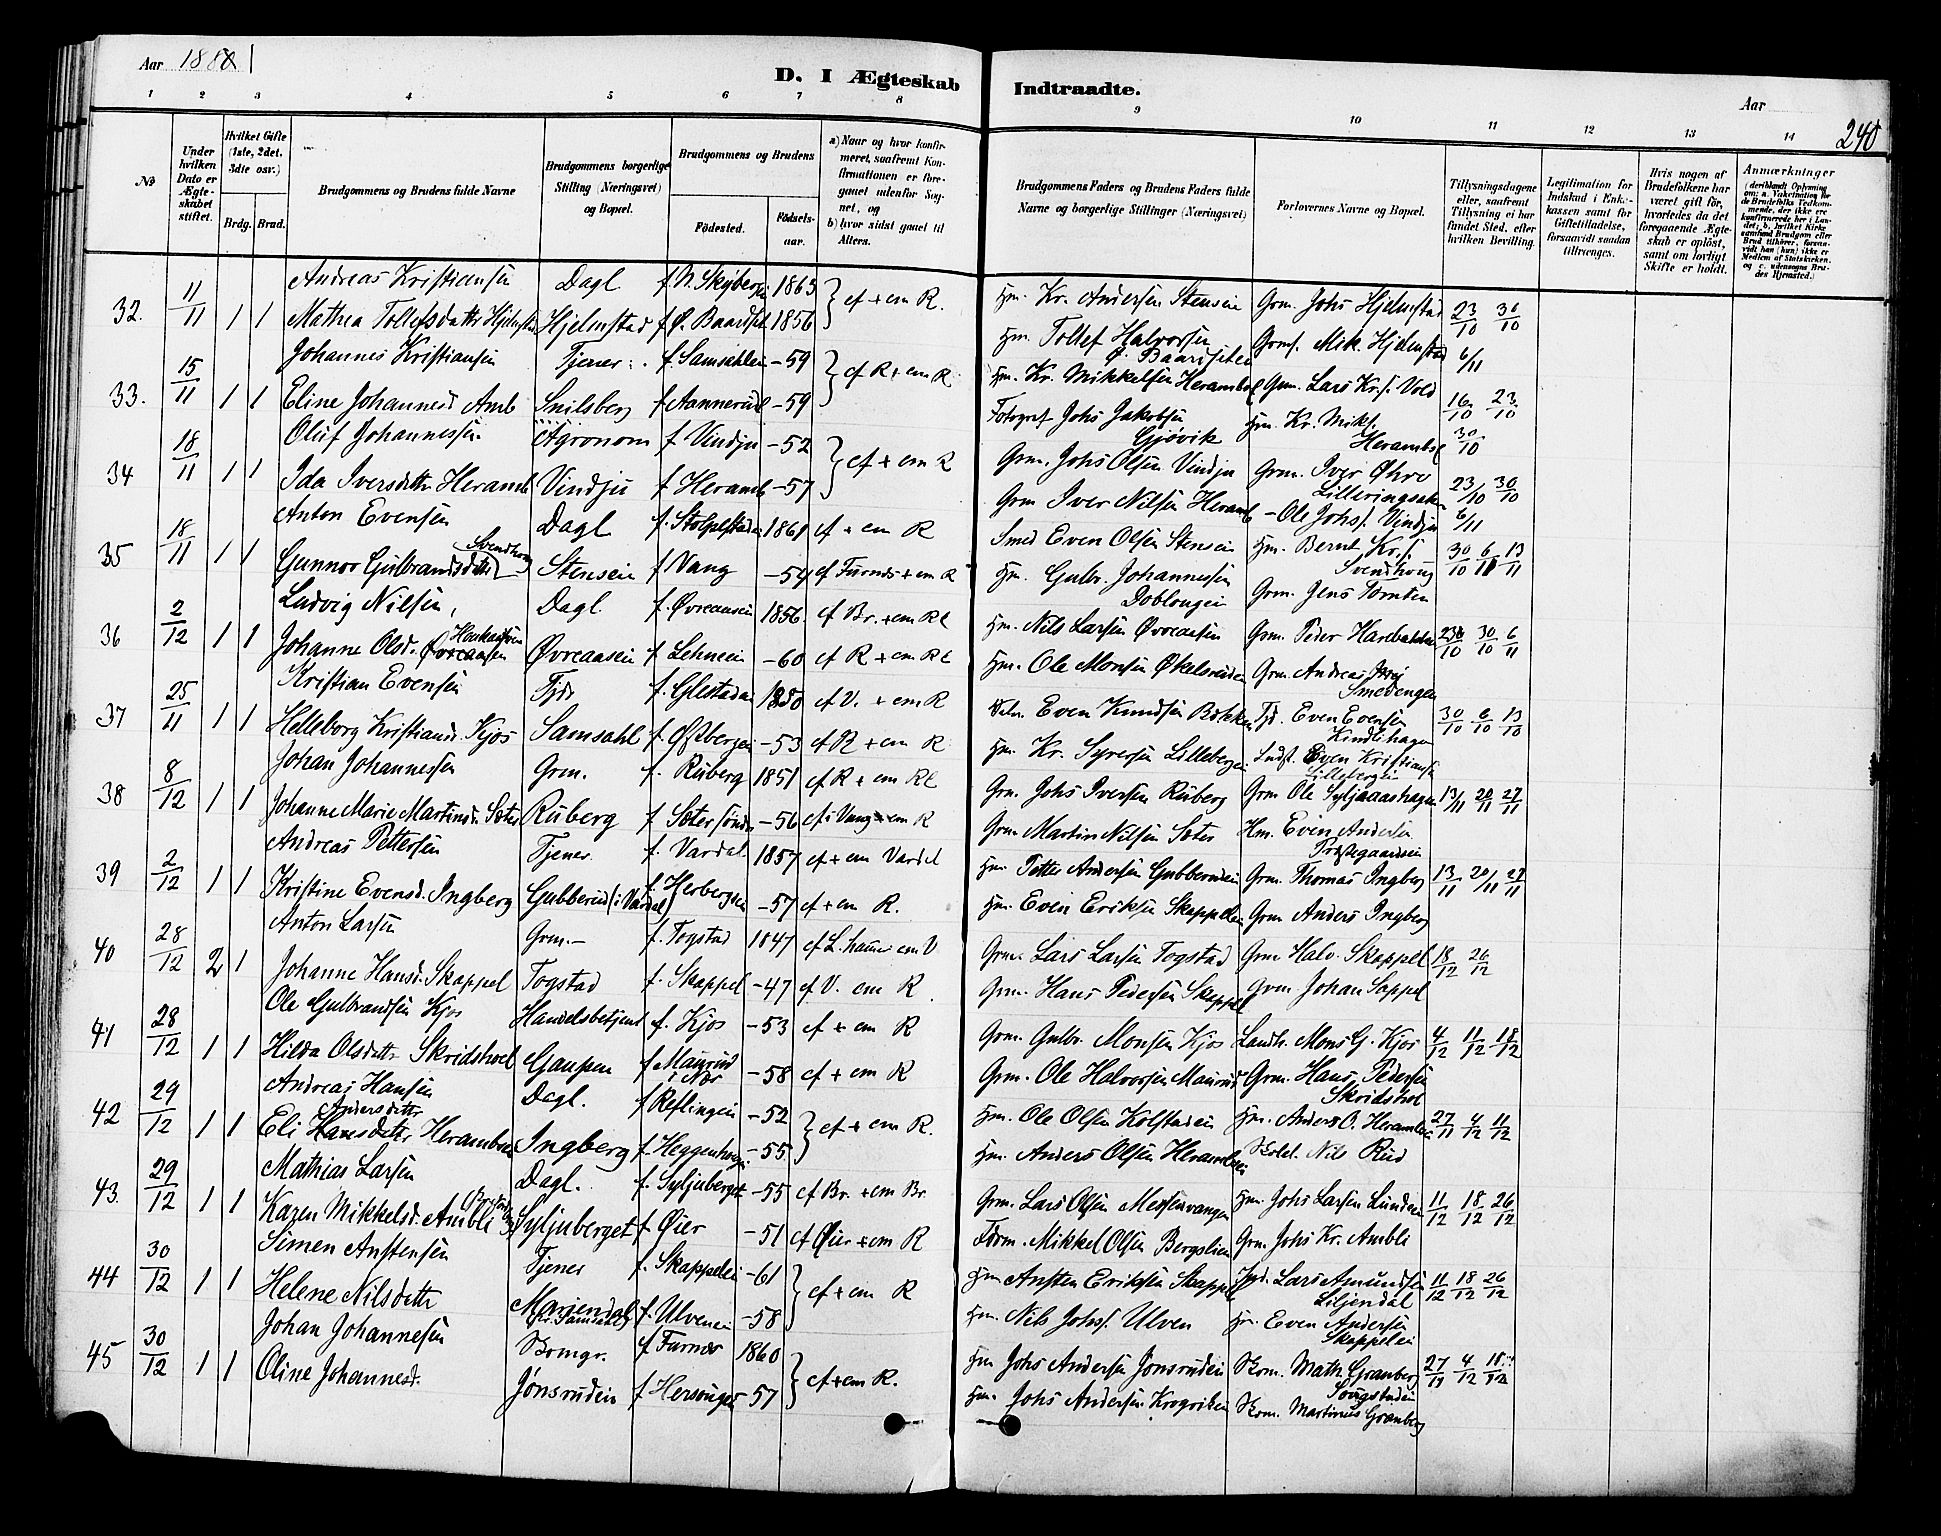 Aar 1881
D. I Ægteskab Indtraadte.
Aar
240
1 2 3 4 5 6 7 8 9 10 11 12 13 14
No
Under hvilken Dato er Ægteskabet stiftet.
Hvilket Gifte (1ste, 2det, 3die osv.)
Brdg. Brud.
Brudgommens og Brudens fulde Navne
Brudgommens borgerlige Stilling (Næringsvei) og Bopæl.
Brudgommens og Brudens
Fødested.
Fødselsaar.
a) Naar og hvor konfirmeret, saafremt Konfirmationen er foregaaet udenfor Sognet, og
b) hvor sidst gaaet til Alters.
Brudgommens Faders og Brudens Faders fulde Navne og borgerlige Stillinger (Næringsvei)
Forlovernes Navne og Bopæl.
Tillysningsdagene eller, saafremt Tillysning ei har fundet Sted, efter hvilken Bevilling.
Legitimation for Indskud i Enkekassen samt for Giftetilladelse, forsaavidt saadan tiltrænges.
Hvis nogen af Brudefolkene har været gift før, hvortedes da det foregaaende Ægteskab er opløst, samt om lovligt Skifte er holdt.
Anmærkninger
32. 11/11 1 1 Andreas Kristiansen Dagl f. N. Skyberg 1863 } cf + em R. Hm. Kr. Andersen Stenseie Grm. Johs Hjelmstad 23/10 30/10
Mathea Tollefsdatter Hjelmstad Hjelmstad f Ø. Baardset 1856 Hm. Tollef Halvorsen Ø. Baardseten Grmf. Mik. Hjelmstad 6/11
33. 15/11 1 1 Johannes Kristiansen Tjener f. Samsahleie -59 } cf R + em R Hm. Kr. Mikkelsen Herambsl Grm. Lars Kr.f. Vold 16/10 23/10
Eline Johannesd Amb Snilsberg f Aannerud -59 Fotograf Johs Jakobsen Gjøvik Hm. Kr. Mikf. Herambsl 30/10
34 18/11 1 1 Oluf Johannessen Agronom f Vindju -52 } cf + em R Grm. Johs Olsen Vindju Grm. Iver Øhre Lilleringsaker 23/10 30/10
Ida Iversdatter Heramb Vindju f Heramb -57 Grm Iver Nilsen Heramb - Ole Johsf. Vindju 6/11
35 18/11 1 1 Anton Evensen Dagl f. Stolpestaden 1861 cf + em R Smed Even Olsen Stenseie Hm. Bernt Kr.f. Svendhoug 30/10 6/11 13/11
Gunnor Gulbrandsdatter Svendhoug Stenseie f Vang -54 cf Furnes + em R Hm. Gulbr. Johannessen Doblougeie Grm. Jens Tømten
36 2/12 1 1 Ludvig Nilsen, Dagl. f. Øvreaaseie 1856. cf Br. + em Rt Hm. Nils Larsen Øvreaasen Grm. Peder Harebakke 23/10 30/10 6/11
Johanne Olsd. Haukaasen Øvreaaseie f Lehneie -60 cf R + em Rt Hm. Ole Monsen Økelsruden Grm. Andreas Smedengen
37 25/11 1 1 Kristian Evensen Tjdr f. Glestadeie 1850 cf V. + em R Even Knudsen Bakken Tjd. Even Evensen Kindlihagen 30/10 6/10 13/10
Helleborg Kristiansd. Kjos Samsahl f. Øfsbergen -53 cf R + em R Hm. Kr. Syversen Lillebergen Indst. Even Kristiansen Lillebergeie
38 8/12 1 1 Johan Johannessen Grm. f. Ruberg 1851 cf R + em Rt Grm. Johs Iversen Ruberg Grm Ole Syljuaashagen 13/11 20/11 27/11
Johanne Marie Martinsd. Sæter Ruberg f Sæter søndre -56 cf i Vang em R Grm Martin Nilsen Sæter Hm. Even Andersen Præstegaardseie
39 2/12 1 1 Andreas Pettersen Tjener f. Vardal. 1857 cf + em Vardal Hm. Petter Andersen Gubberudeie Grm. Thomas Ingberg 13/11 20/11 27/11
Kristine Evensd. Ingberg Gubberud (i Vardal) f Herbergeie -57 cf + em R. Hm. Even Eriksen Skappeleie Grm Anders Ingberg
40 28/12 2 1 Anton Larsen Grm. f. Togstad 1847 cf L.hamer em V Grm. Lars Larsen Togstad Grm Halv. Skappel 18/12 26/12
Johanne Hansd. Skappel Togstad f. Skappel -47 cf V. em R Grm. Hans Pedersen Skappel Grm Johan Sappel
41 28/12 1 1 Ole Gulbrandsen Kjos Handelsbetjent f. Kjos -53 cf + em R Grm. Gulbr. Monsen Kjos Landh. Mons G. Kjos 4/12 11/12 18/12
Hilda Olsdatter Skridshoel Gaupen f Maurud i Næs -58 cf + em R Grm. Ole Halvorsen Maurud Grm. Hans Pedersen Skridshol
42 29/12 1 1 Andreas Hansen Dagl. f Reflingeie -52 } cf + em R. Hm. Ole Olsen Kolstadeie Hm. Anders O. Herambeie 27/11 4/12 11/12
Eli Andersdatter Herambeie Ingberg f. Heggenhougen -55 Hm. Anders Olsen Herambeie Nils Rud
43. 29/12 1 1 Mathias Larsen Dagl. f. Syljuberget -55 cf Br. + em Br. Grm. Lars Olsen Messenvangen Hm. Johs Larsen Lundeie 11/12 18/12 26/12
Karen Mikkelsd. Ambli Syljuberget f Øier -51 cf Øier + em R Form. Mikkel Olsen Bergslien Grm. Johs Kr. Ambli
44 30/12 1 1 Simen Anstensen Tjener f. Skappeleie -61 } cf + em R Hm Ansten Eriksen Skappel Ind. Lars Amundsen Liljendal 11/12 18/12 26/12
Helene Nilsdatter Mariendal (Samsahl) f. Ulveneie -58 Hm. Nils Johsf. Ulven Hm. Even Andersen Skappeleie
45 30/12 1 1 Johan Johannesen Skomgr. f. Furnes 1860 } cf + em R. Hm Johs Andersen Jønsrudeie Skom. Math. Granberg Sougstadeie 27/11 4/12 18/12
Oline Johannesd. Jønsrudeie f Hersougeie -57 Hm. Johs Andersen Krogvikeie Skom. Martinus Granberg